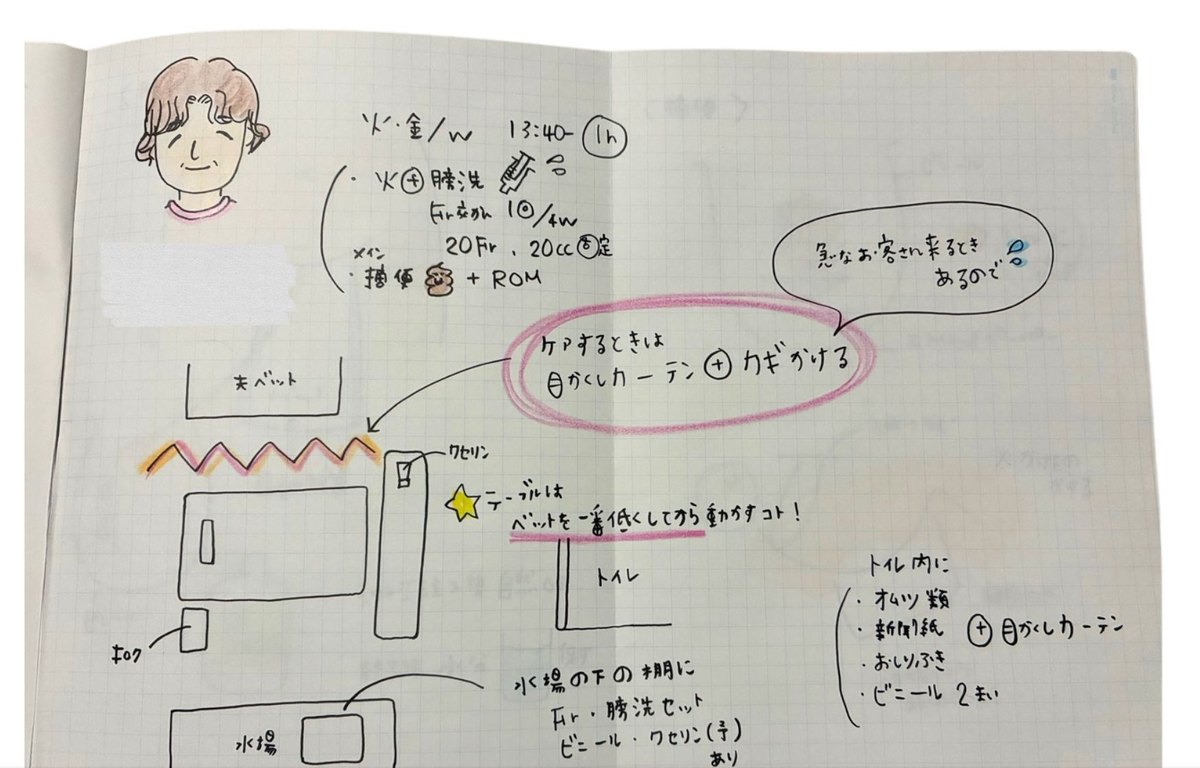 火・金/w 13:40- 1h
・火⊕膀洗
Fr交かん 1回/4w
20Fr、20cc固定
メイン
・摘便 + ROM
急なお客さん来るとき
あるので
ケアするときは
目かくしカーテン ⊕ カギかける
夫ベット
ワセリン
テーブルは
ベットを一番低くしてから動かすコト!
トイレ
トイレ内に
・オムツ類
・新聞紙 ⊕ 目かくしカーテン
・おしりふき
・ビニール 2まい
キロク
水場の下の棚に
Fr・膀洗セット
ビニール・ワセリン(予)
あり
水場